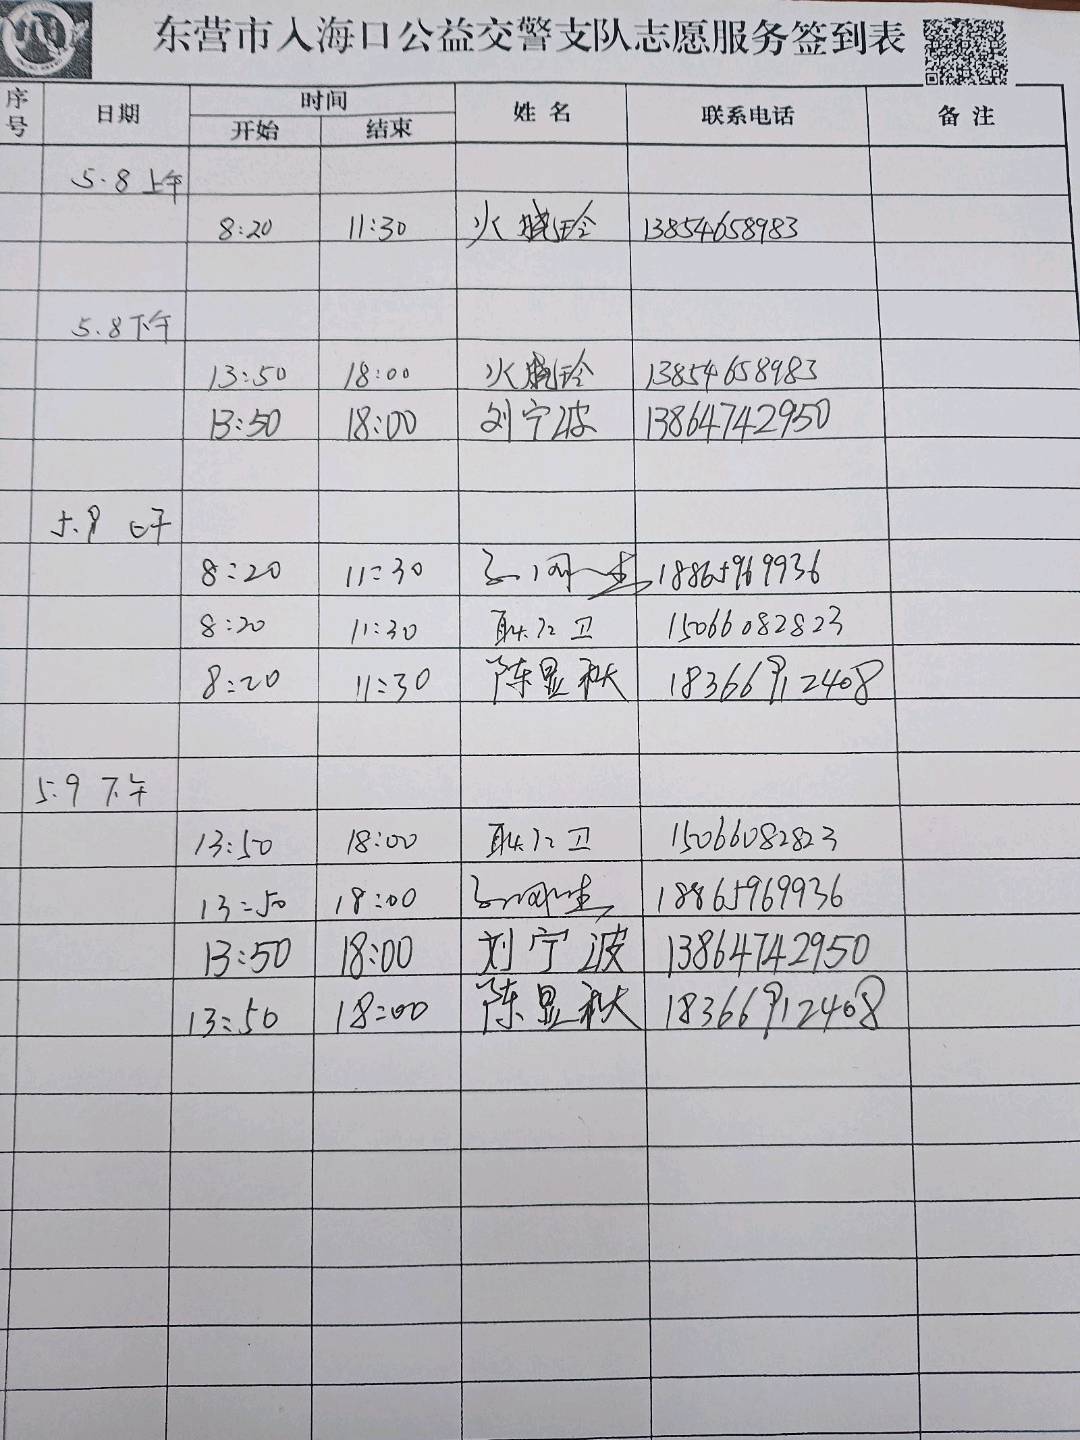 东营市入海口公益交警支队志愿服务签到表
序号 日期 时间 姓名 联系电话 备注
开始 结束
5.8 上午
8:20 11:30 火晓玲 13854658983
5.8下午
13:50 18:00 火晓玲 13854658983
13:50 18:00 刘宁波 13864742950
5.9 上午
8:20 11:30 18865969936
8:20 11:30 耿江卫 15066082823
8:20 11:30 陈显秋 18366912408
5.9 下午
13:50 18:00 耿江卫 15066082823
13:50 18:00 18865969936
13:50 18:00 刘宁波 13864742950
13:50 18:00 陈显秋 18366912408